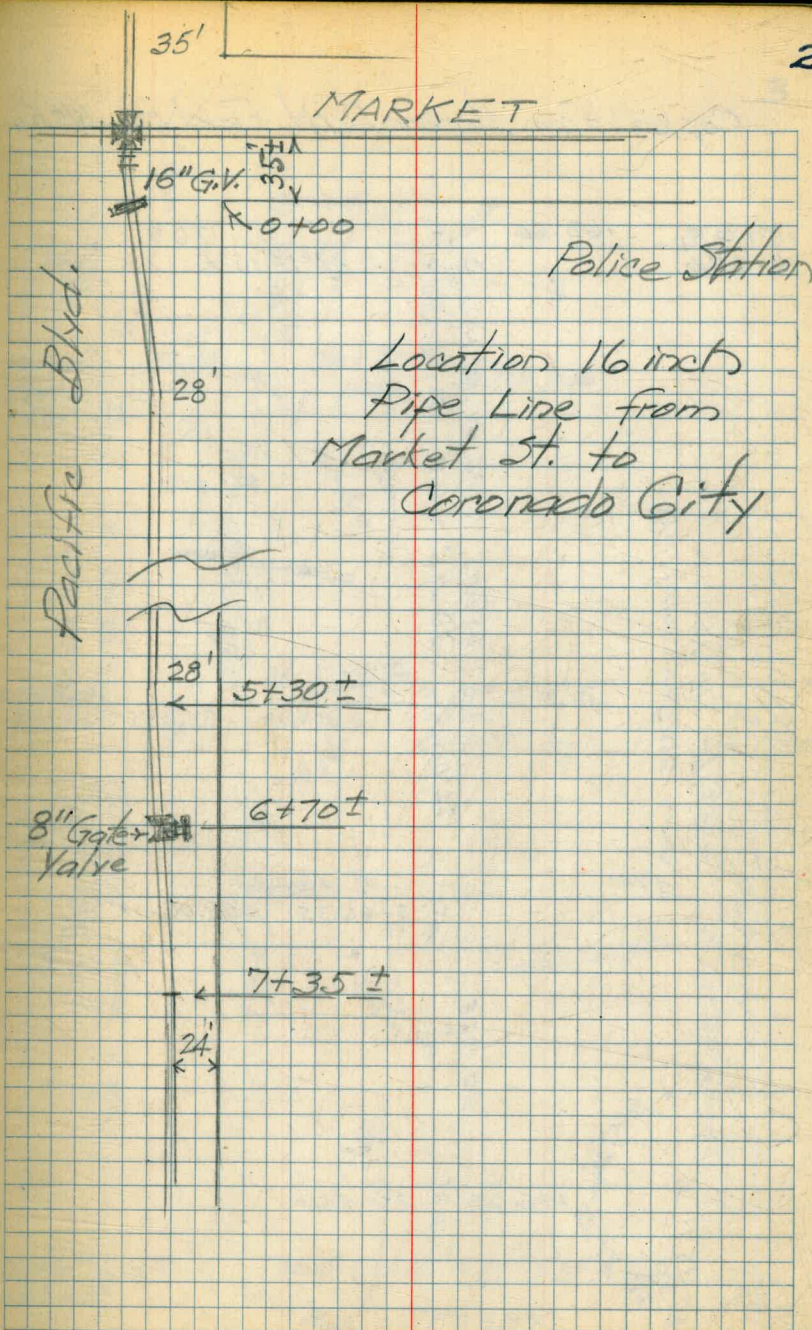 35'
2
MARKET
35'±
16" G.V.
0+00
Police Station
Pacific Blvd.
28'
Location 16 inch
Pipe Line from
Market St. to
Coronado City
28'
5+30 ±
6+70 ±
8" Gate
Valve
7+35 ±
24'